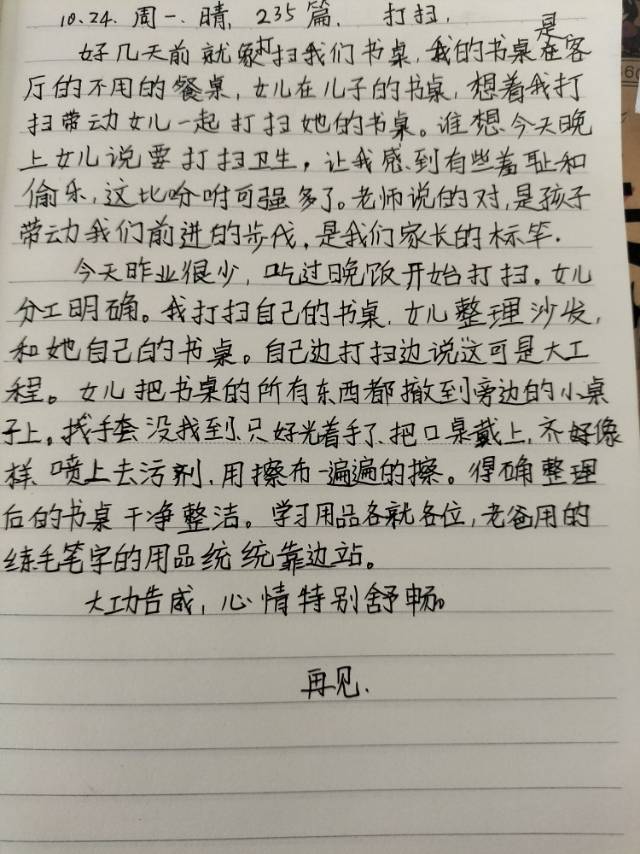 10.24. 周一. 晴, 235篇. 打扫.
好几天前就象打扫我们书桌, 我的书桌是在客
厅的不用的餐桌, 女儿在儿子的书桌, 想着我打
扫带动女儿一起打扫她的书桌。谁想今天晚
上女儿说要打扫卫生, 让我感到有些羞耻和
偷乐, 这比吩咐可强多了。老师说的对, 是孩子
带动我们前进的步伐, 是我们家长的标竿.
今天昨业很少, 吃过晚饭开始打扫。女儿
分工明确。我打扫自己的书桌, 女儿整理沙发,
和她自己的书桌。自己边打扫边说这可是大工
程。女儿把书桌的所有东西都撤到旁边的小桌
子上。找手套没找到只好光着手了、把口桌戴上, 还好像
样. 喷上去污剂, 用擦布一遍遍的擦。得确整理
后的书桌干净整洁。学习用品各就各位, 老爸用的
练毛笔字的用品统统靠边站。
大功告成, 心情特别舒畅。
再见.